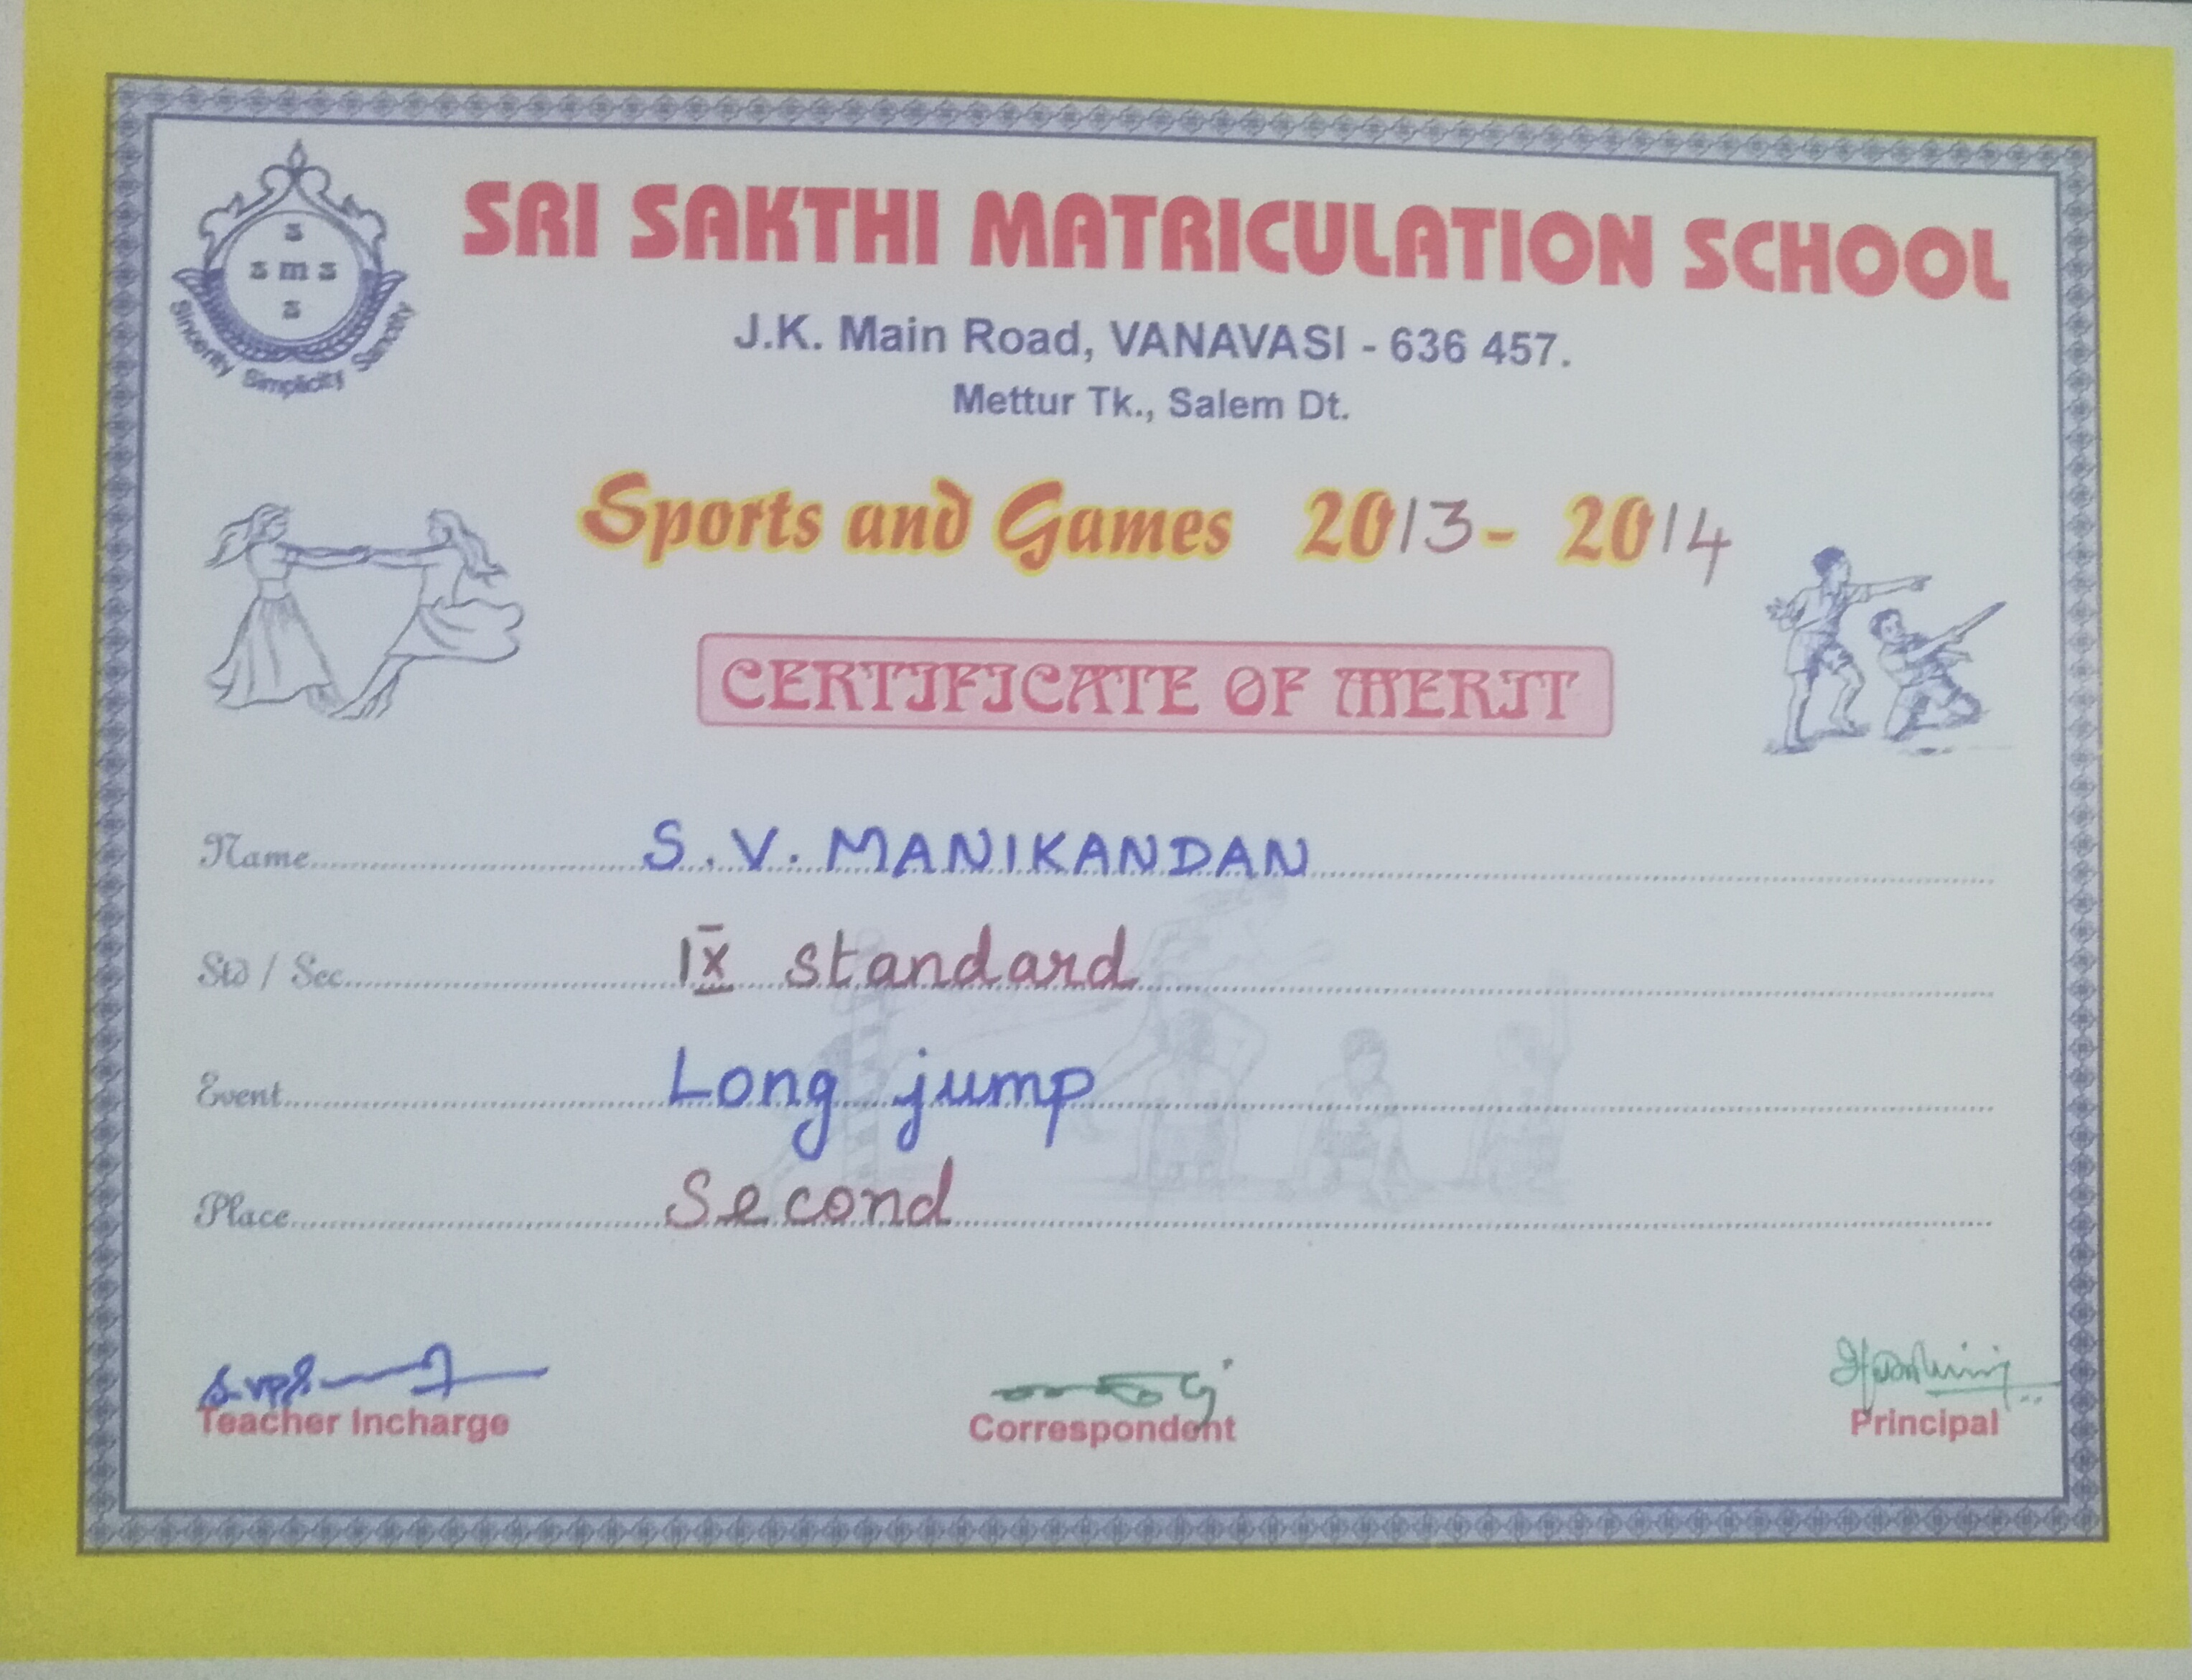 s
s m s
s
Sincerity Simplicity Sanctity
SRI SAKTHI MATRICULATION SCHOOL
J.K. Main Road, VANAVASI - 636 457.
Mettur Tk., Salem Dt.
Sports and Games 2013 - 2014
CERTIFICATE OF MERIT
Name S.V. MANIKANDAN
Std / Sec IX standard
Event Long jump
Place Second
Teacher Incharge Correspondent Principal